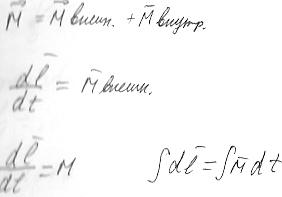 M̄ = M̄ внешн. + M̄ внутр.
dl̄/dt = M̄ внешн.
dl̄/dt = M ∫dl̄ = ∫M̄dt